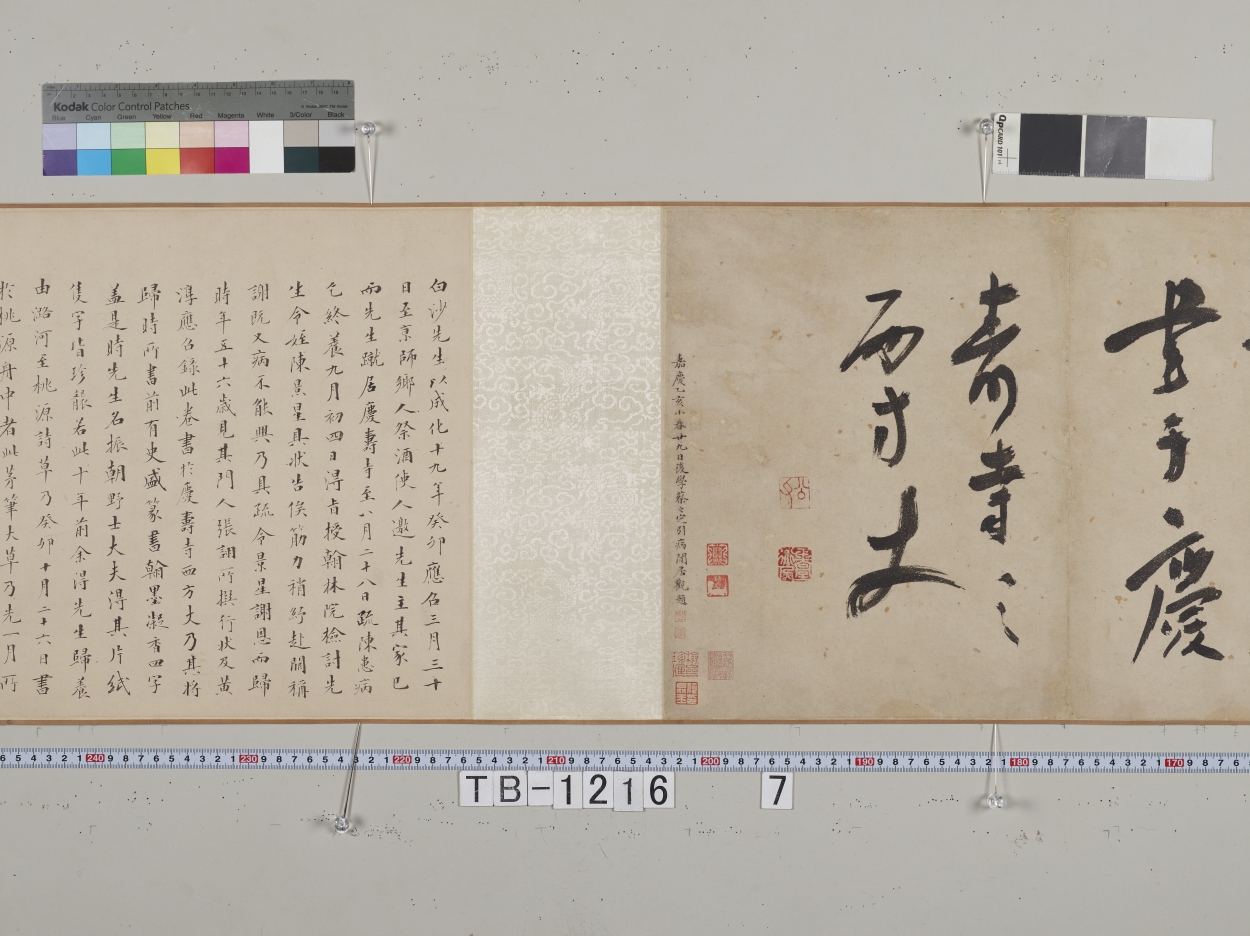 Kodak Color Control Patches
Blue Cyan Green Yellow Red Magenta White 3/Color Black
QPCARD 101
書于慶
壽寺之
西方丈
嘉慶乙亥小春廿九日後學蔡之定引病閒居觀題
白沙先生以成化十九年癸卯應召三月三十
日至京師鄉人祭酒使人邀先生主其家已
而先生蹴居慶壽寺至八月二十八日疏陳患病
乞終養九月初四日得旨授翰林院檢討先
生令姪陳景星具狀告俟筋力稍紓赴闕稱
謝既又病不能興乃具疏令景星謝恩而歸
時年五十六歲見其門人張詡所撰行狀及黃
淳應召錄此卷書於慶壽寺西方丈乃其將
歸時所書前有史盛篆書翰墨凝香四字
蓋是時先生名振朝野士大夫得其片紙
隻字皆珍護若此十年前余得先生歸養
由潞河至桃源詩草乃癸卯十月二十六日書
於桃源舟中者此茅筆大草乃先一月所
TB-1216 7
240 230 220 210 200 190 180 170